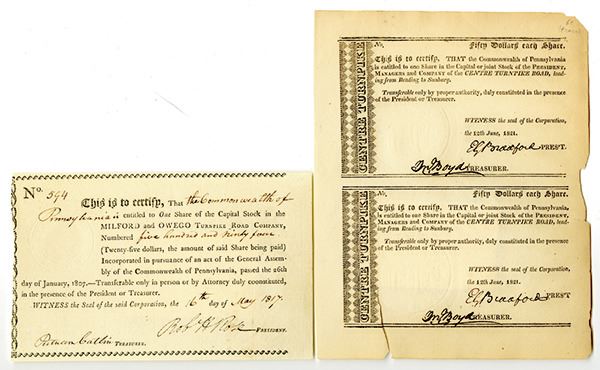 No. 594
This is to certify, That the Commonwealth of
Pennsylvania is entitled to One Share of the Capital Stock in the
MILFORD and OWEGO TURNPIKE ROAD COMPANY,
Numbered five hundred and ninety four
(Twenty-five dollars, the amount of said Share being paid)
Incorporated in pursuance of an act of the General Assem-
bly of the Commonwealth of Pennsylvania, passed the 26th
day of January, 1807.—Transferable only in person or by Attorney duly constituted,
in the presence of the President or Treasurer.
WITNESS the Seal of the said Corporation, the 16th day of May 1817.
Rob H Rose PRESIDENT.
Putnam Catlin TREASURER.
CENTRE TURNPIKE
No. Fifty Dollars each Share.
This is to certify, THAT the Commonwealth of Pennsylvania
is entitled to one Share in the Capital or joint Stock of the PRESIDENT,
MANAGERS and COMPANY of the CENTRE TURNPIKE ROAD, lead-
ing from Reading to Sunbury.
Transferable only by proper authority, duly constituted in the presence
of the President or Treasurer.
WITNESS the seal of the Corporation,
the 12th June, 1821.
PREST.
Boyd TREASURER.
CENTRE TURNPIKE
No. Fifty Dollars each Share.
This is to certify, THAT the Commonwealth of Pennsylvania
is entitled to one Share in the Capital or joint Stock of the PRESIDENT,
MANAGERS and COMPANY of the CENTRE TURNPIKE ROAD, lead-
ing from Reading to Sunbury.
Transferable only by proper authority, duly constituted in the presence
of the President or Treasurer.
WITNESS the seal of the Corporation,
the 12th June, 1821.
PREST
Boyd TREASURER.